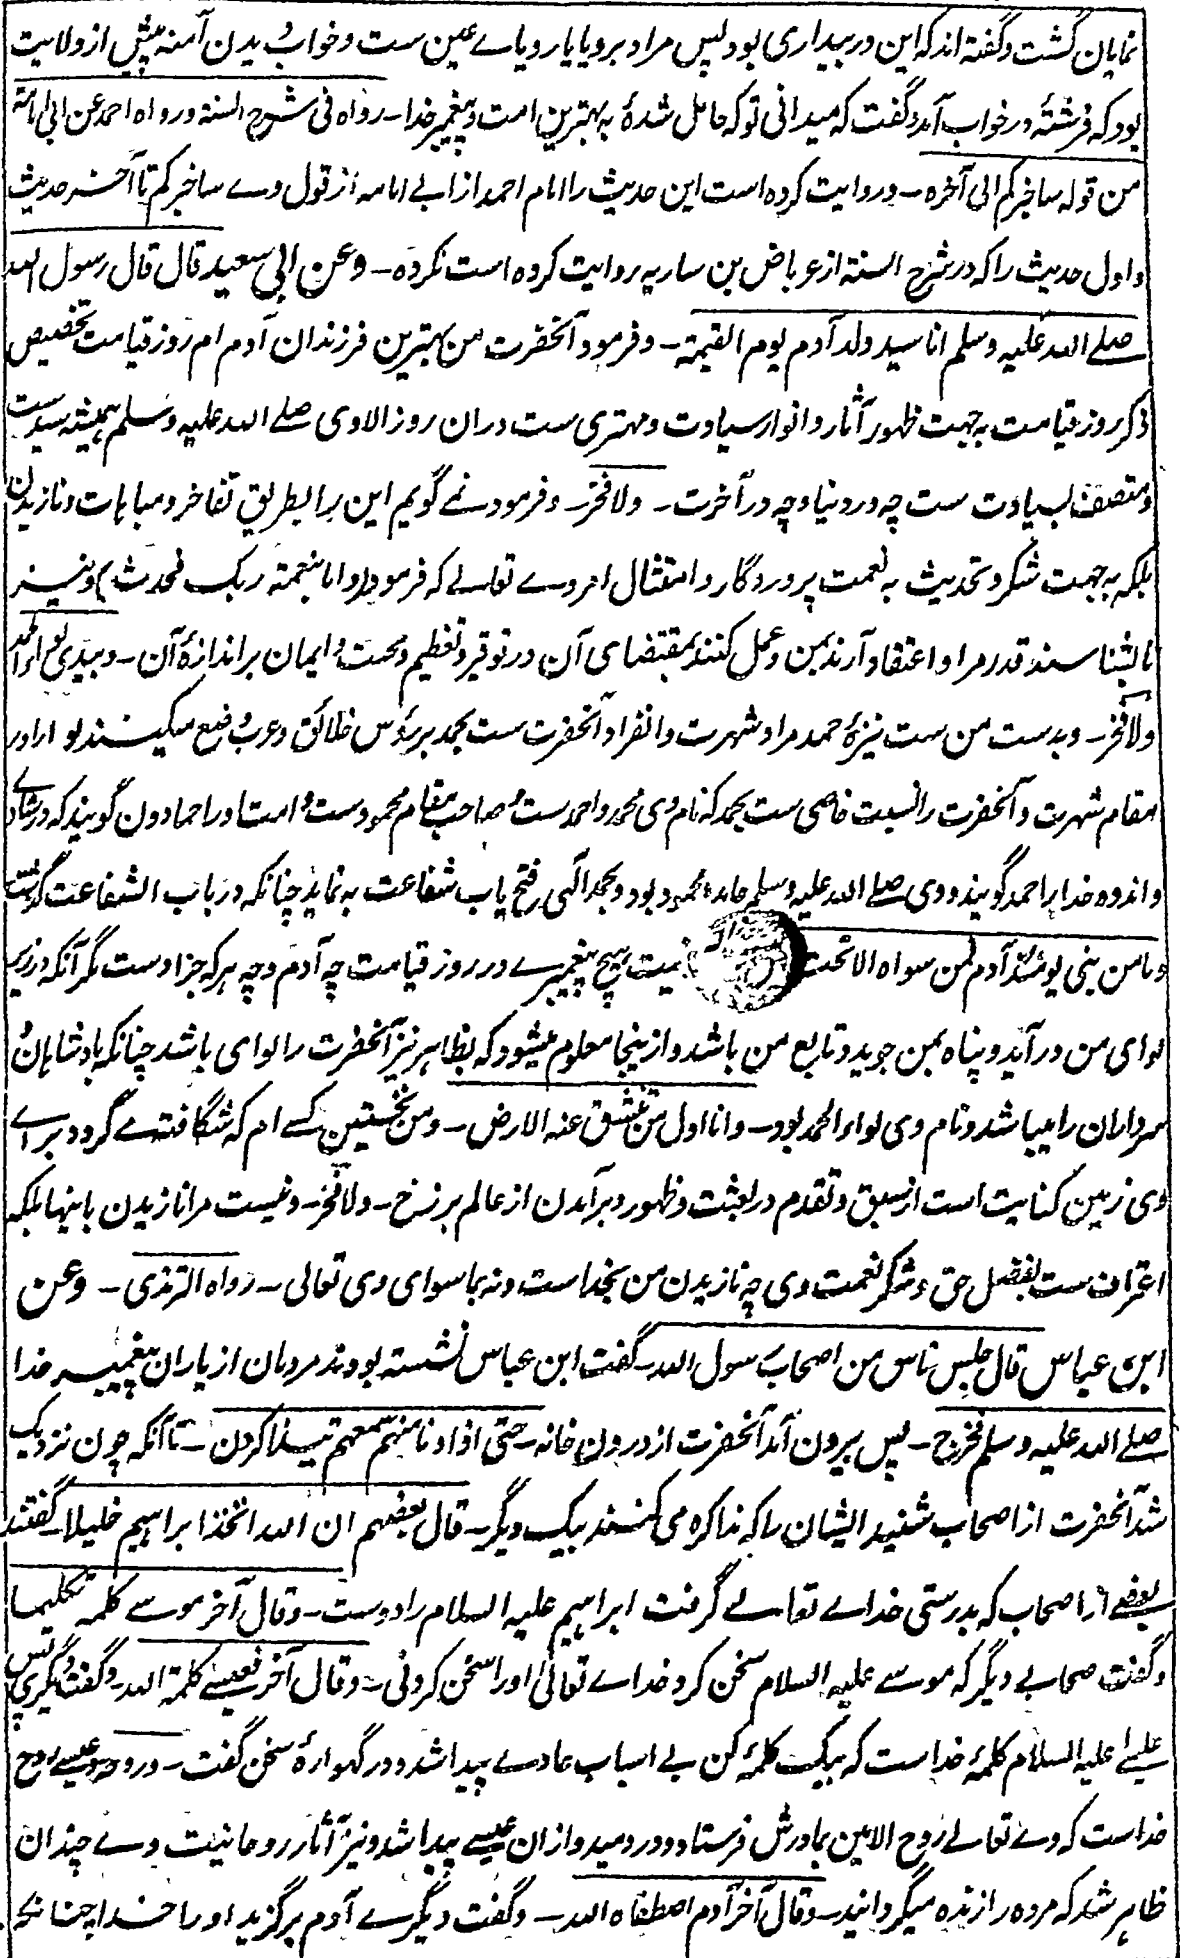 نمایان گشت و گفته اند که این در بیداری بود پس مراد برویا یا رویاے عین ست و خواب دیدن آمنه پیش از ولایت
بود که فرشتۀ در خواب آمد و گفت که میدانی تو که حامل شدۀ به بهترین امت و پیغمبر خدا ـ رواه فی شرح السنة و رواه احمد عن ابی امامة
من قوله ساخبرکم الی آخره ـ و روایت کرده است این حدیث را امام احمد از ابے امامه از قول وے ساخبرکم تا آخر حدیث
و اول حدیث را که در شرح السنة از عرباض بن ساریه روایت کرده است نکرده ـ وعن ابی سعید قال قال رسول الله
صلے الله علیه وسلم انا سید ولد آدم یوم القیمة ـ و فرمود آنحضرت من بهترین فرزندان آدم ام روز قیامت تخصیص
ذکر روز قیامت به جهت ظهور آثار و انوار سیادت و مهتری ست دران روز الا وی صلے الله علیه وسلم همیشه سید ست
و متصف بسیادت ست چه در دنیا و چه در آخرت ـ ولا فخر ـ و فرمود نمے گویم این را بطریق تفاخر و مباهات و نازیدن
بلکه به جهت شکر و تحدیث به نعمت پروردگار و امتثال امر وے تعالے که فرمود (و اما بنعمة ربک فحدث) و نیز
تا بشناسند قدر مرا و اعتقاد آرند بمن و عمل کنند بمقتضای آن در توقیر و تعظیم و محبت و ایمان بر اندازۀ آن ـ و بیدی لواء الحمد
ولا فخر ـ و بدست من ست نیزۀ حمد مراد شهرت و انفراد آنحضرت ست بحمد بر رؤس خلائق و عرب وضع میکنند لوا را در
مقام شهرت و آنحضرت را نسبت خاصی ست بحمد که نام وی محمد و احمد ست و صاحب مقام محمود ست و امت او را حمادون گویند که در شادے
و اندوه خدا را حمد گویند و وی صلے الله علیه وسلم حامد و محمود بود و بحمد الٰهی فتح باب شفاعت به نماید چنانکه در باب الشفاعت گذشت
وما من نبی یومئذ آدم فمن سواه الا تحت نیست هیچ پیغمبرے در روز قیامت چه آدم و چه هر که جز اوست مگر آنکه در زیر
لوای من در آید و پناه بمن جوید و تابع من باشد و ازینجا معلوم میشود که بظاهر نیز آنحضرت را لوای باشد چنانکه بادشاهان و
سرداران را میباشد و نام وی لواء الحمد بود ـ و انا اول من تنشق عنه الارض ـ و من نخستین کسے ام که شگافته گردد براے
وی زمین کنایت است از سبق و تقدم در بعثت و ظهور و برآمدن از عالم برزخ ـ ولا فخر ـ و نیست مرا نازیدن باینها بلکه
اعتراف ست بفضل حق و شکر نعمت وی چه نازیدن من بخداست و نه بما سوای وی تعالی ـ رواه الترمذی ـ وعن
ابن عباس قال جلس ناس من اصحاب رسول الله ـ گفت ابن عباس نشسته بودند مردمان از یاران پیغمبر خدا
صلے الله علیه وسلم فخرج ـ پس بیرون آمد آنحضرت از درون خانه ـ حتی اذا دنا منهم سمعهم یتذاکرون ـ تا آنکه چون نزدیک
شد آنحضرت از اصحاب شنید ایشان را که مذاکره می کنند بیک دیگر ـ قال بعضهم ان الله اتخذ ابراهیم خلیلا ـ گفتند
بعضے از اصحاب که بدرستی خداے تعالے گرفت ابراهیم علیه السلام را دوست ـ و قال آخر موسے کلمه تکلیما
و گفت صحابے دیگر که موسے علیه السلام سخن کرد خداے تعالیٰ او را سخن کردنی ـ و قال آخر فعیسے کلمة الله ـ و گفت دیگری پس
عیسے علیه السلام کلمۀ خداست که بیک کلمۀ کن بے اسباب عادے پیدا شد و در گهوارۀ سخن گفت ـ و روحه و عیسے روح
خداست که وے تعالے روح الامین بمادرش فرستاد و در دمید و ازان عیسے پیدا شد و نیز آثار روحانیت وے چندان
ظاهر شد که مرده را زنده میگردانید ـ و قال آخر آدم اصطفاه الله ـ و گفت دیگرے آدم برگزید او را خدا چنانچه